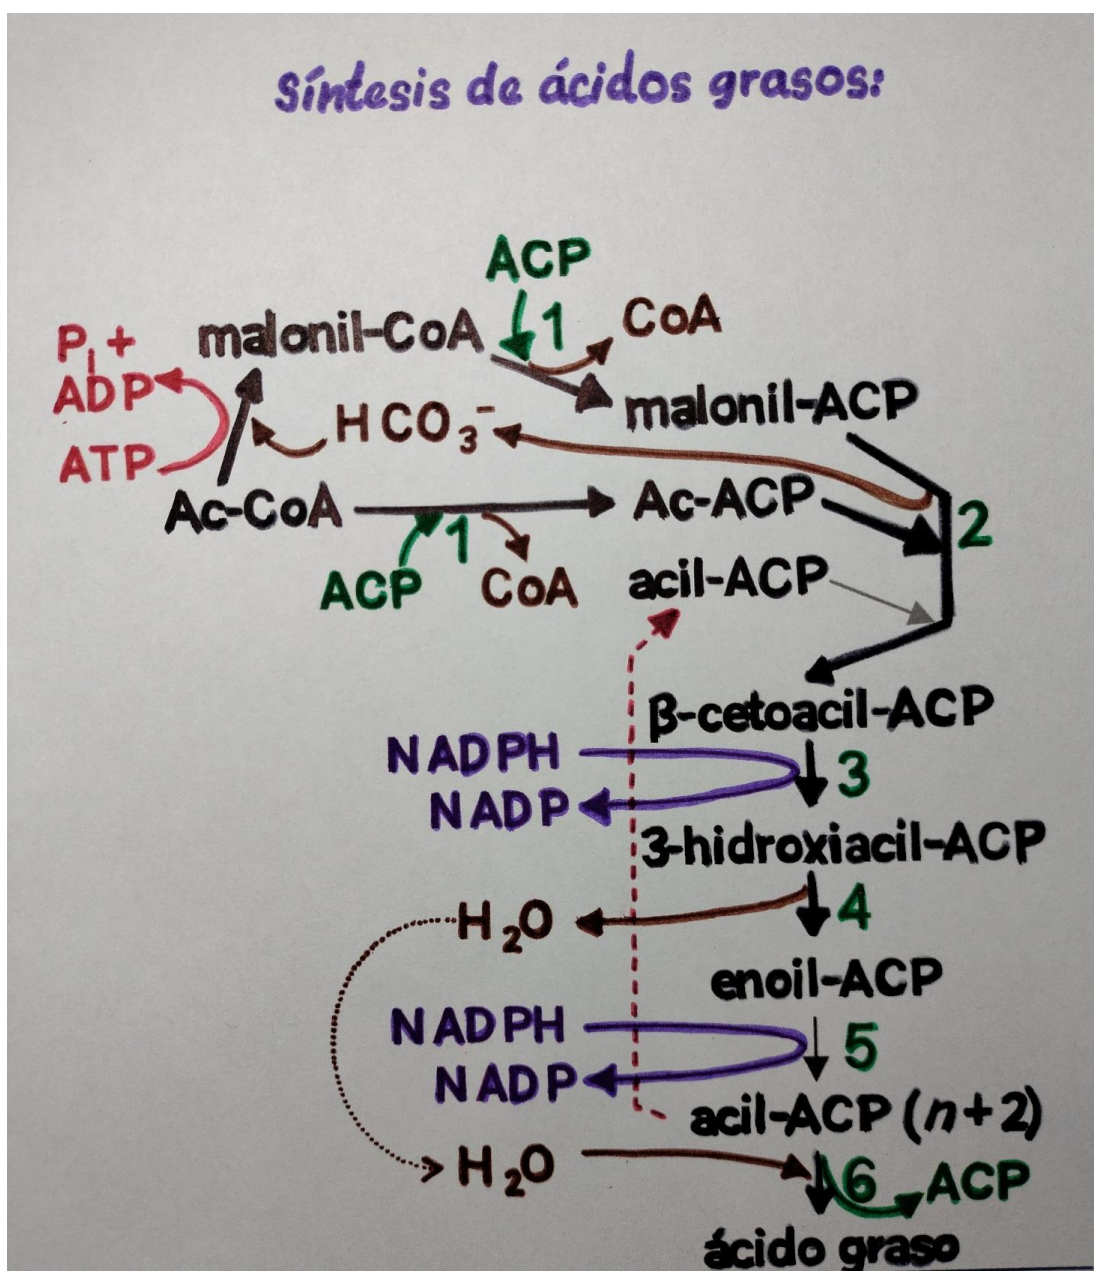 Síntesis de ácidos grasos:
ACP
1
CoA
malonil-CoA
Pi +
ADP
malonil-ACP
HCO3-
ATP
Ac-CoA
Ac-ACP
2
1
ACP
CoA
acil-ACP
β-cetoacil-ACP
NADPH
3
NADP
3-hidroxiacil-ACP
H2O
4
enoil-ACP
NADPH
5
NADP
acil-ACP (n+2)
H2O
6
ACP
ácido graso